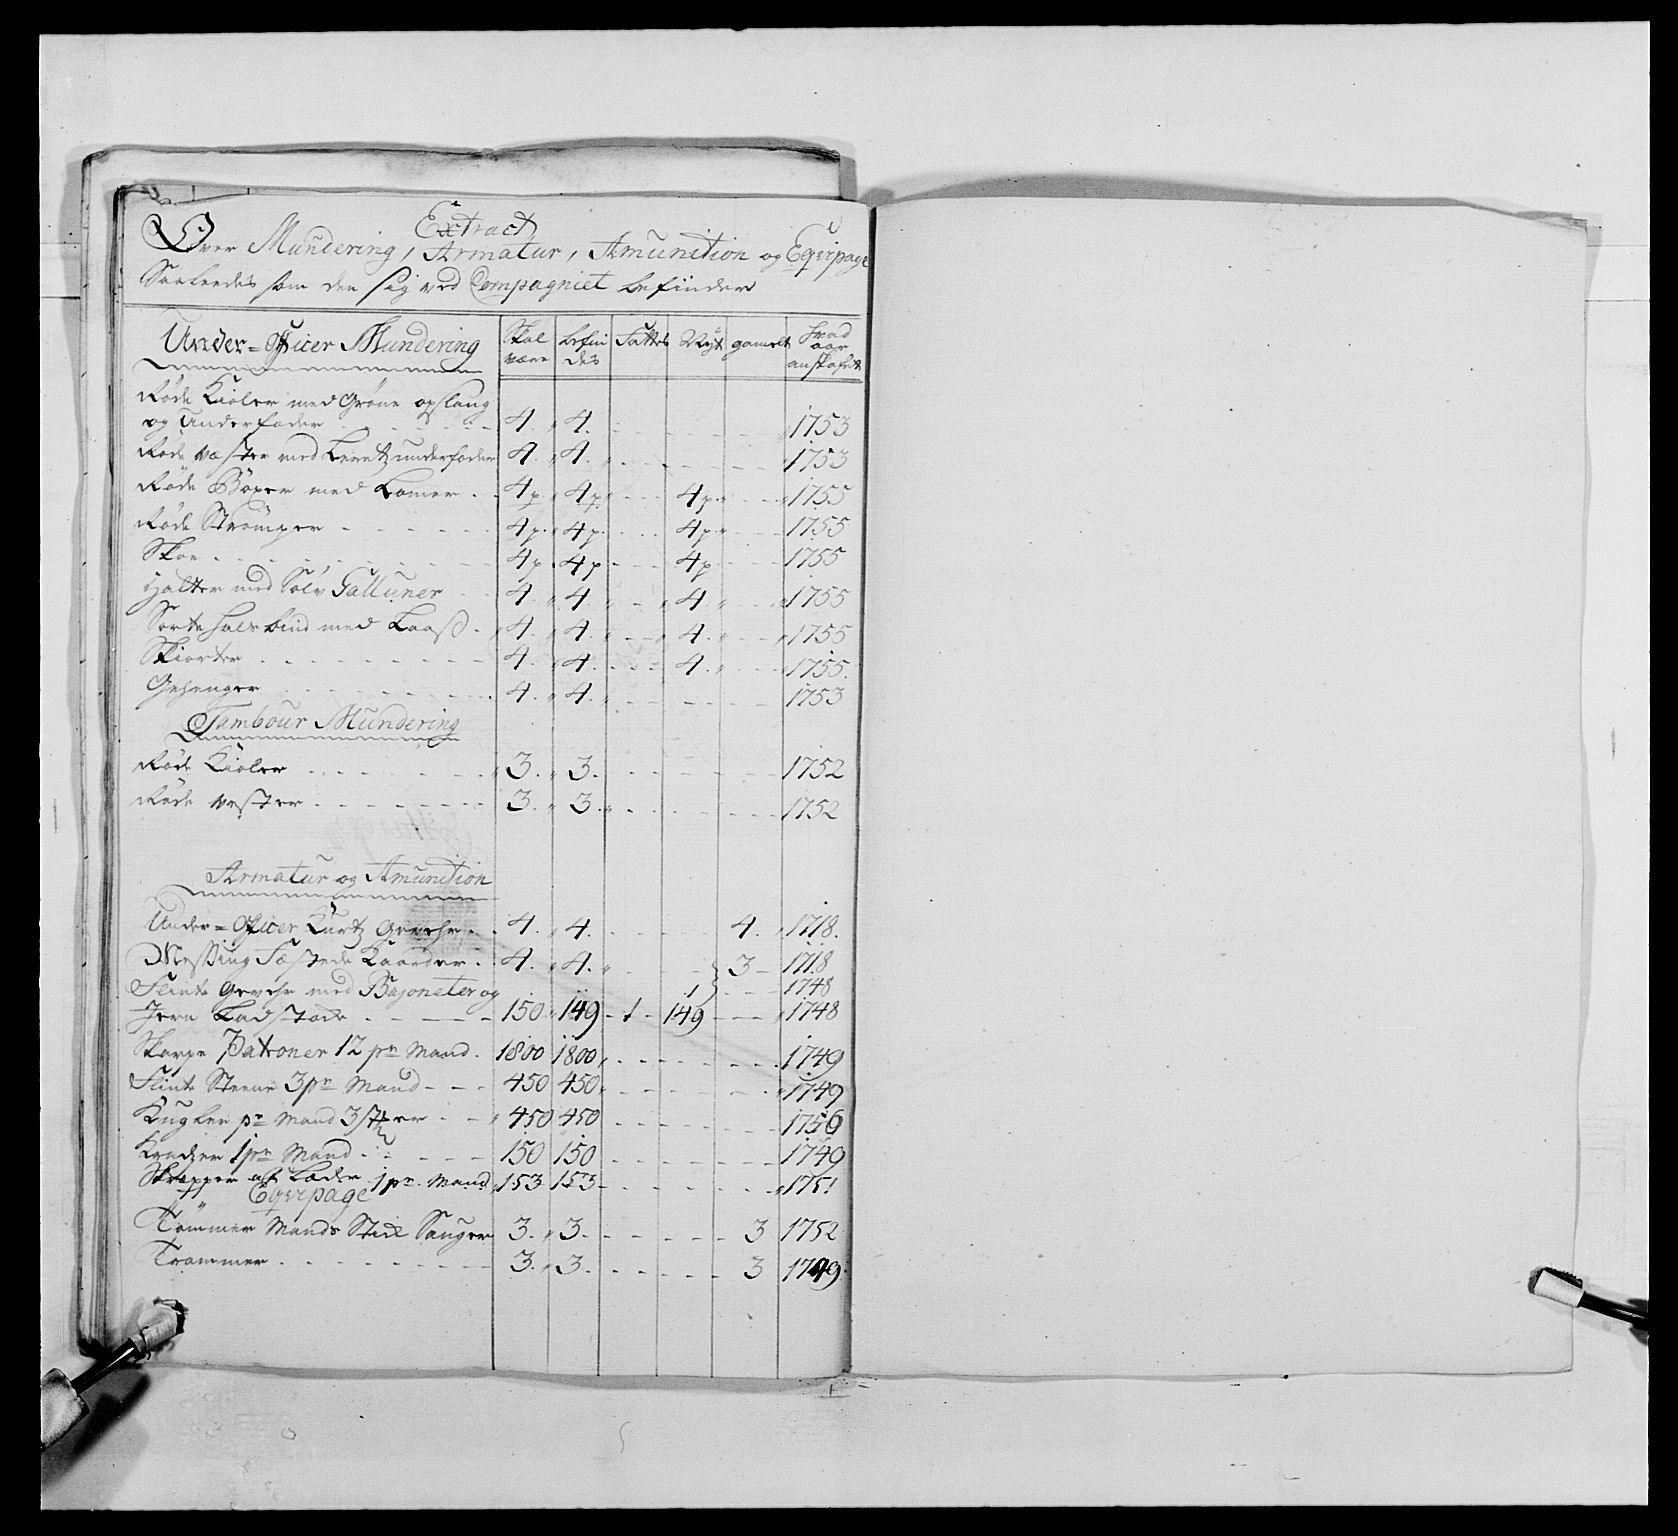 Extract
Over Mundering, Armatur, Amunition og Eqvipage
Saaledes som den sig ved Compagniet befinder
Under=Officer Mundering Skal være befindes Fattes Nyt gamelt Hvad aar anskafet
Røde Kioler med Grøne opslaug
og Underfoder 4. 4. 1753
Røde Vester med Lerretz underfoder 4. 4. 1753
Røde Böxer med Lomer 4p 4p 4p 1755
Røde Strömper 4p. 4p. 4p 1755
Skoe 4p. 4p 4p 1755
Hatter med Sölv Galluner 4. 4. 4. 1755
Sorte halsbind med Laaß 4. 4. 4. 1755
Skiorter 4. 4. 4. 1755.
Gehenger 4. 4. 1753
Tambour Mundering
Røde Kioler 3. 3. 1752
Røde Vester 3. 3. 1752
Armatur og Amunition
Under=Officer Kurtz Gevehr 4. 4. 4. 1718.
Messing Fæstede Kaarder 4. 4. 3 1718
Flinte Gevehr med Bajoneter og 1 1748
Jern Ladstøcke 150 149 1 149 1748
Skarpe Patroner 12 pr Mand 1800 1800 1749
Flinte Steene 3 pr Mand 450 450 1749
Kugler pr Mand 3 450 450 1756
Kradser 1 pr Mand 150 150 1749
Skrapper af Læder 1 pr Mand 153 153 1751
Eqvipage
Tömmer Mands Stick Sauger 3. 3. 3 1752
Trommer 3. 3. 3 1749.